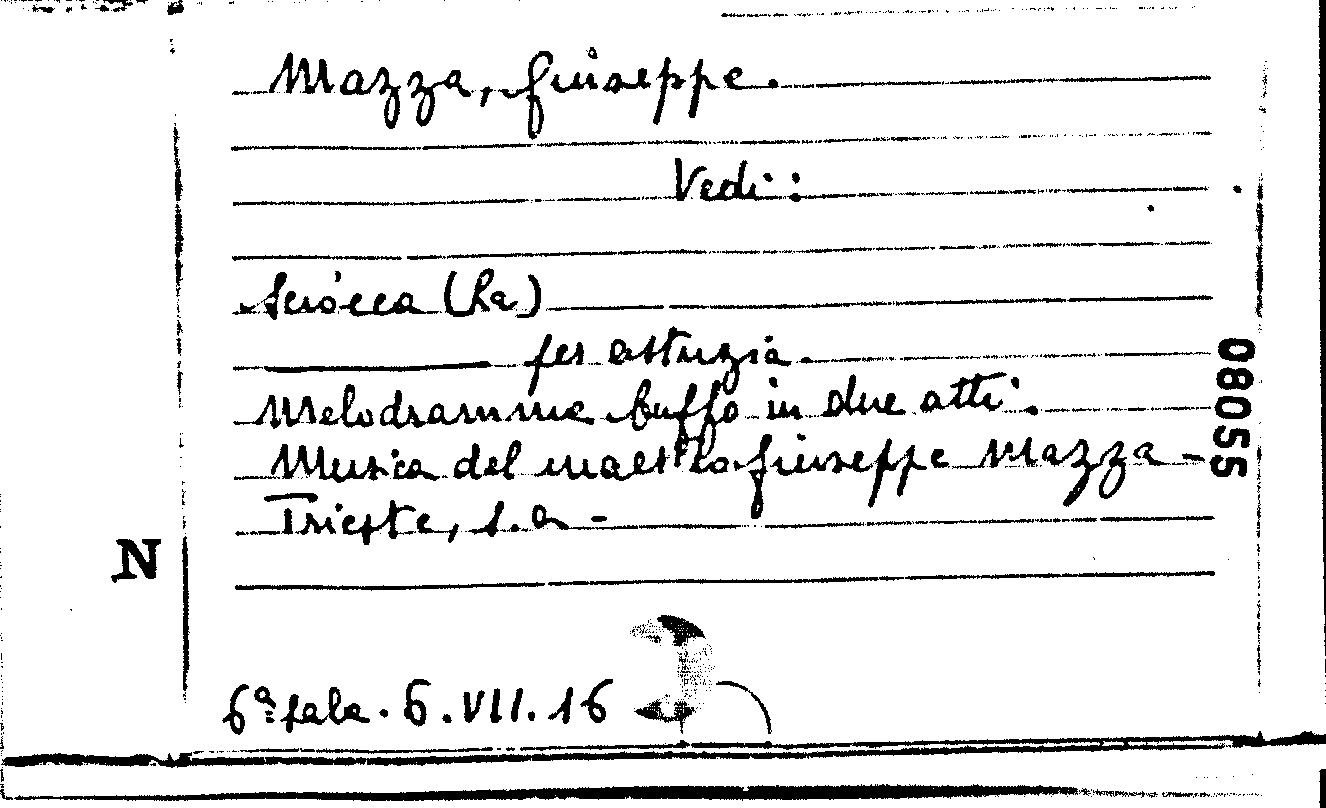 Mazza, Giuseppe.
Vedi:
Sciocca (La)
per astuzia.
Melodramma buffo in due atti.
Musica del maestro Giuseppe Mazza -
Trieste, s.a. -
08055
N
6ª sala. 6.VII.16